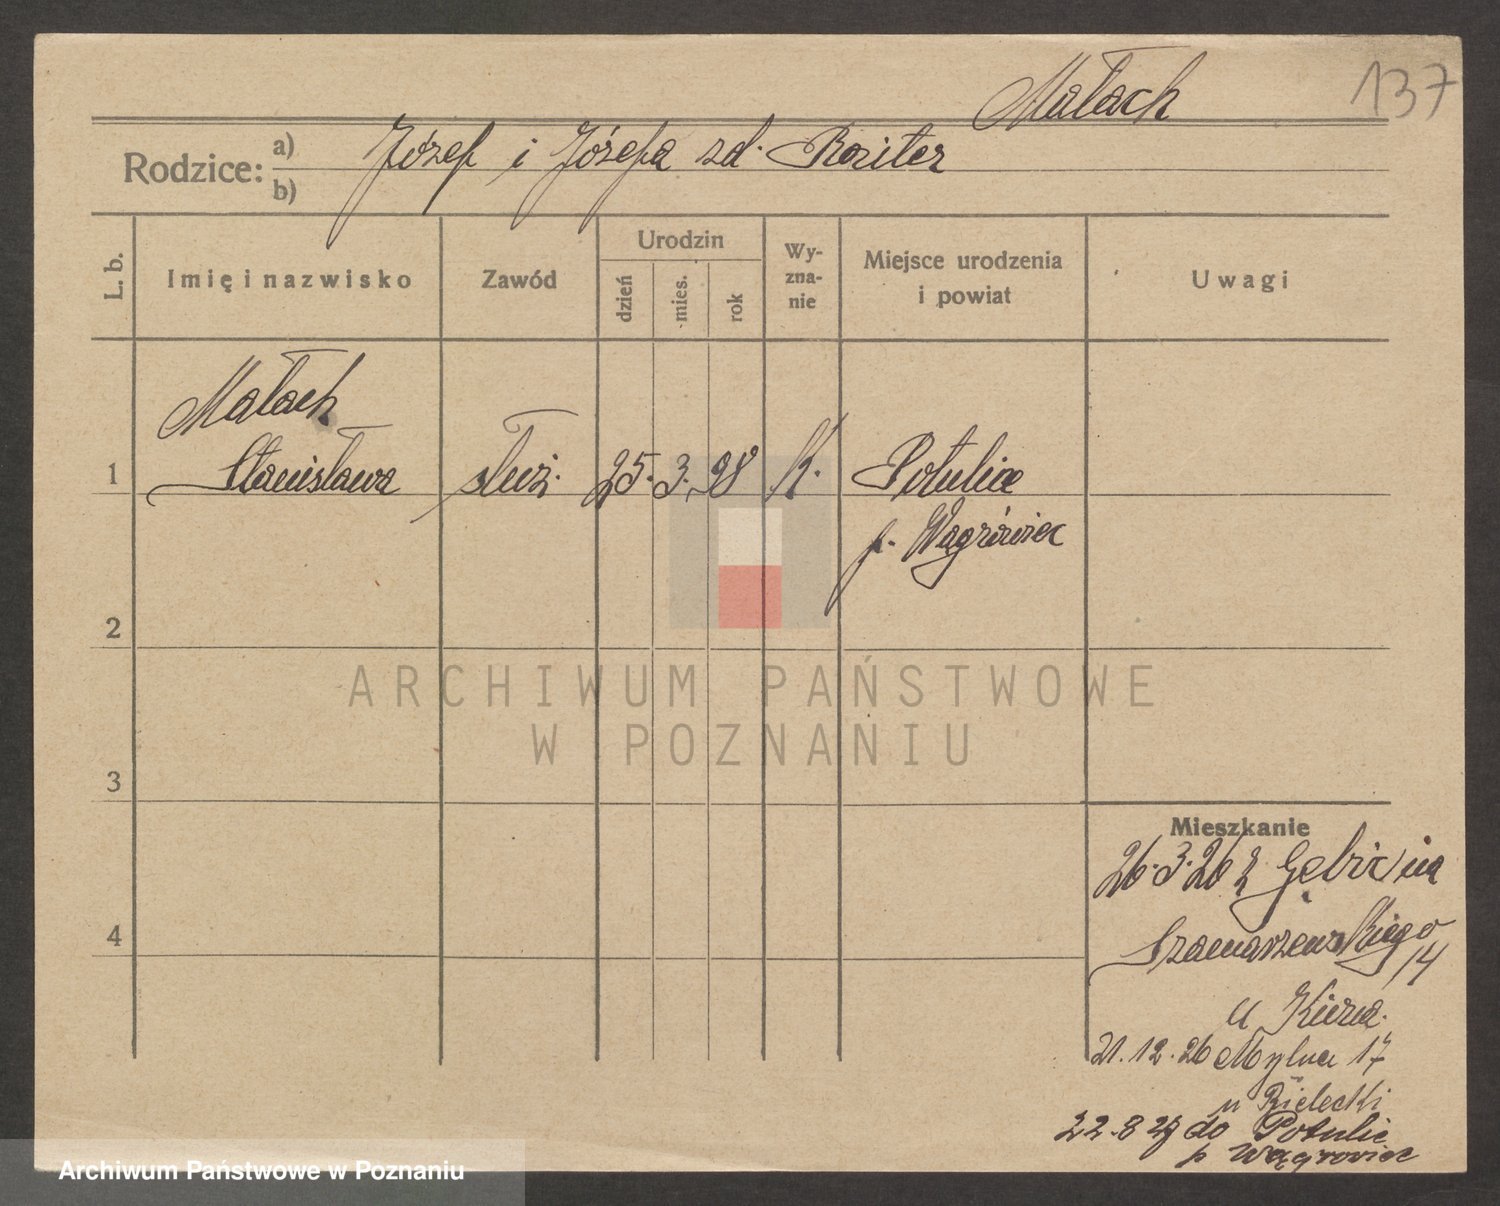 Małach
137
Rodzice: a) b)
Józef i Józefa zd. Roziter
L. b.
Imię i nazwisko
Zawód
Urodzin
dzień
mies.
rok
Wy-
zna-
nie
Miejsce urodzenia
i powiat
Uwagi
Małach
1 Stanisława służ. 25. 3. 98 K. Potulice
p. Wągrówiec
2
3
4
ARCHIWUM PAŃSTWOWE
W POZNANIU
Mieszkanie
26.3.26 z Gębic na
Szamarzewskiego
14
u
21.12.26 Mylna 17
u Bielecki
22.8 27 do Potulic
p Wągrowiec
Archiwum Państwowe w Poznaniu